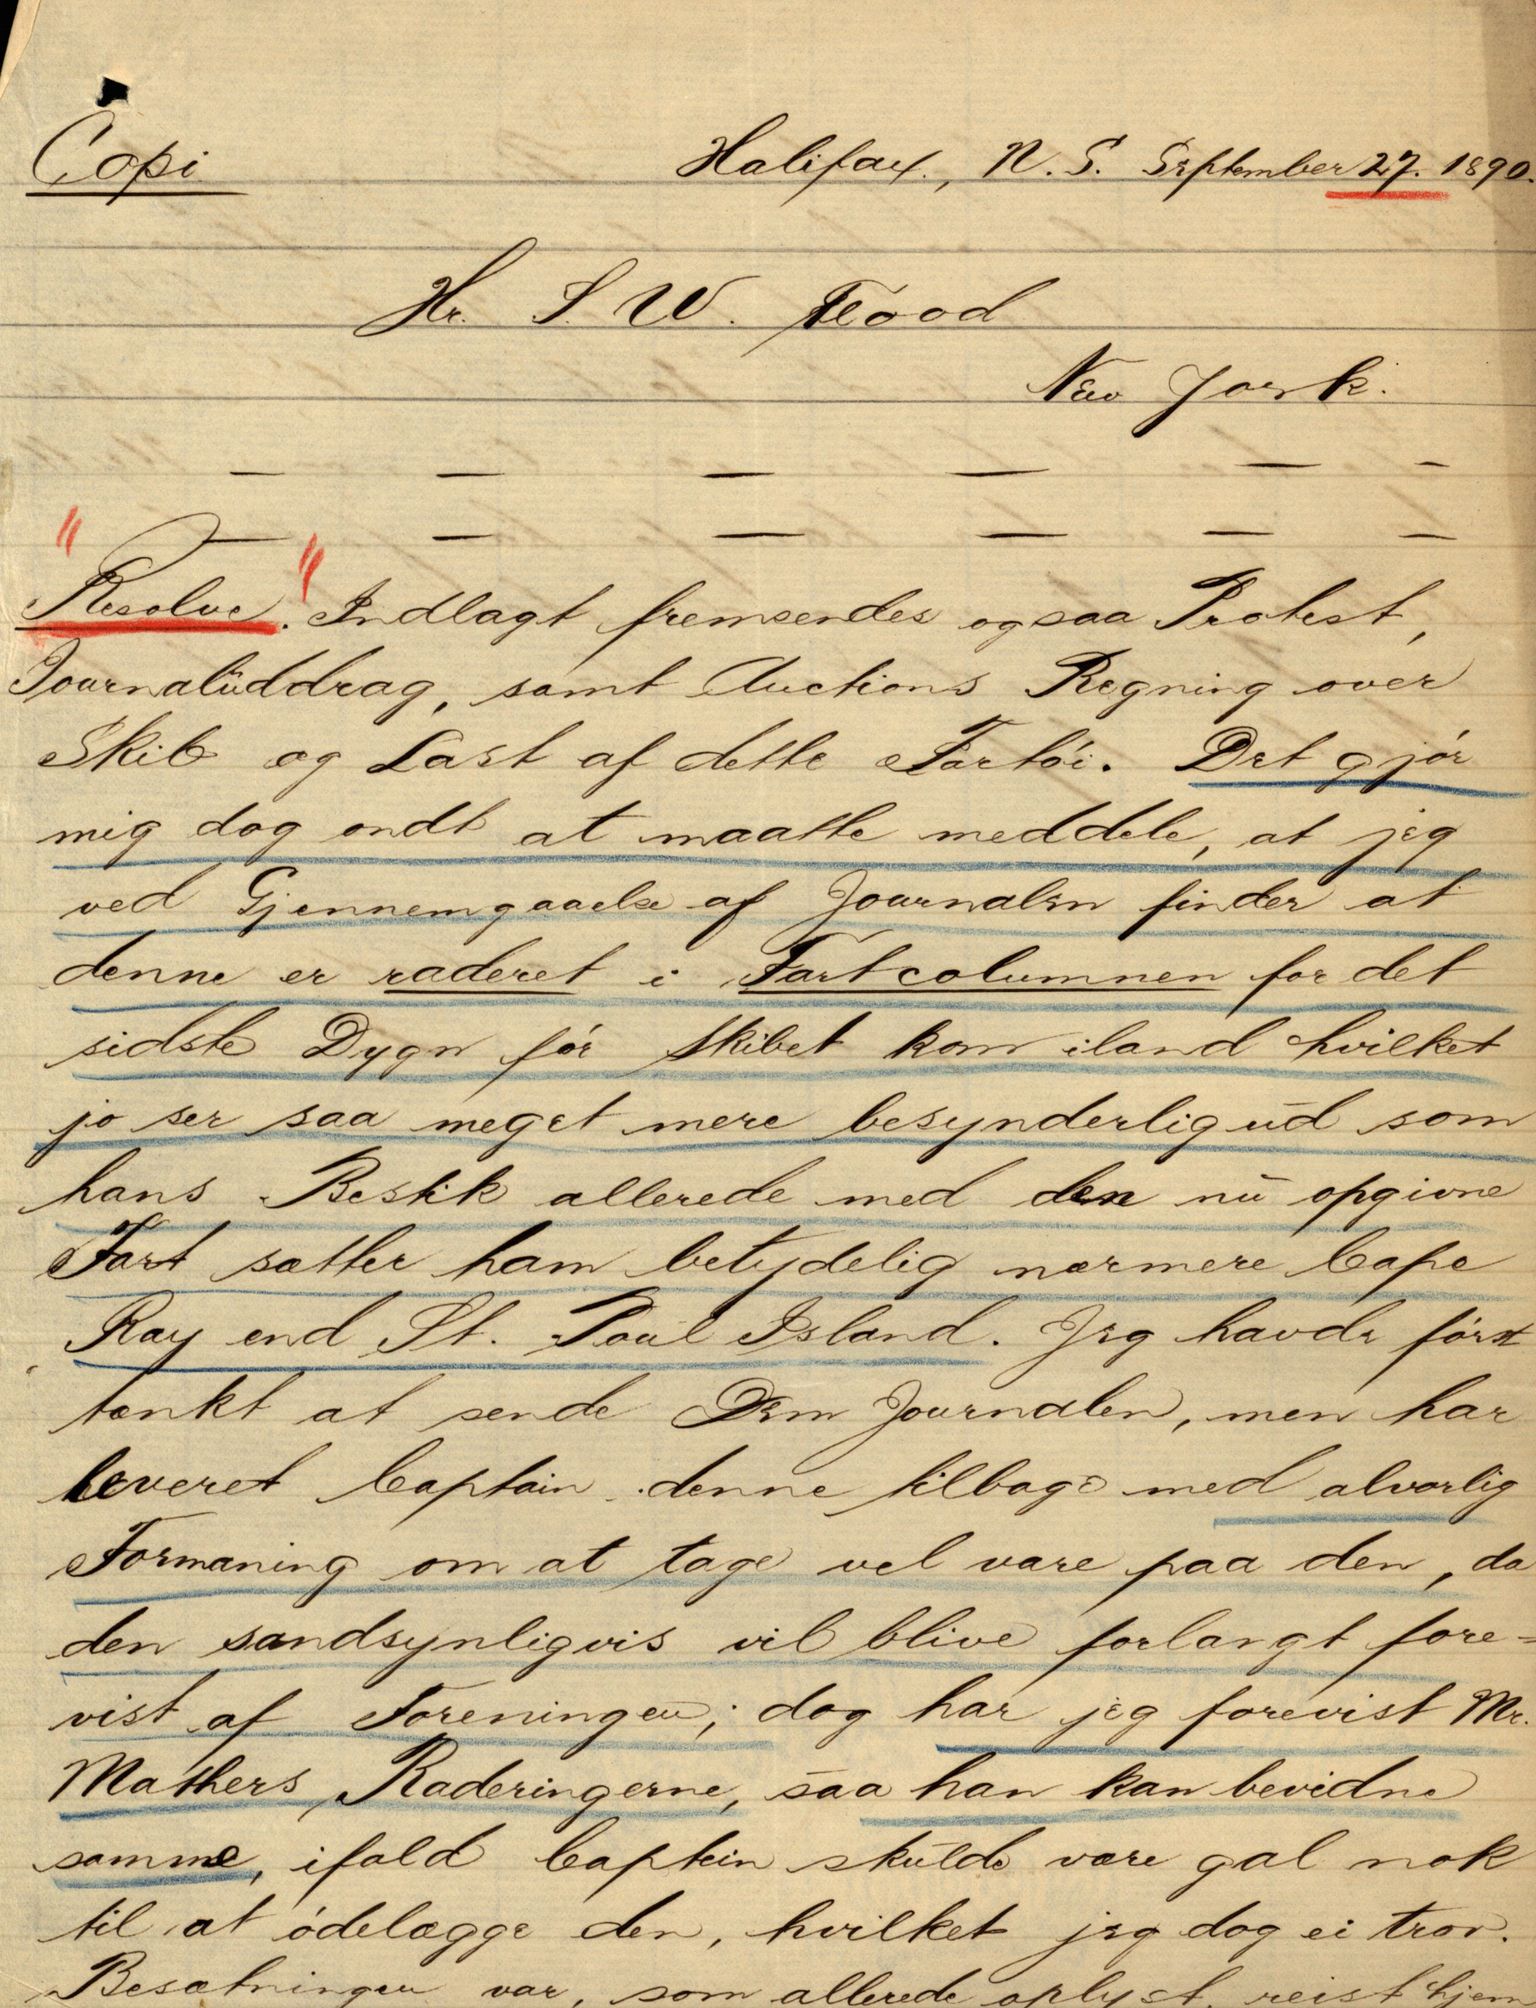 Copi
Halifax., N. S. September 27. 1890.
Hr. S. W. Flood
New York.
— — — — — —
— — — — — —
"Resolve". Indlagt fremsendes ogsaa Protest,
Journalūddrag, samt Auctions Regning over
Skib og Last af dette Fartói. Det gjór
mig dog ondt at maatte meddele, at jeg
ved Gjennemgaaelse af Journalen finder at
denne er raderet i Fartcolumnen for det
sidste Dygn fór Skibet kom iland hvilket
jo ser saa meget mere besynderlig ūd som
hans Bestik allerede med den nū opgivne
Fart sætter ham betydelig nærmere Cape
Ray end St. Poūl Island. Jeg havde fórst
tænkt at sende Dem Journalen, men har
leveret Captain denne tilbage med alvorlig
Formaning om at tage vel vare paa den, da
den sandsynligvis vil blive forlangt fore=
vist af Foreningen; dog har jeg forevist Mr.
Mathers Raderingerne, saa han kan bevidne
samme, ifald Captein skūlde være gal nok
til at ódelægge den, hvilket jeg dog ei tror.
Besætningen var, som allerede oplyst, reist hjem